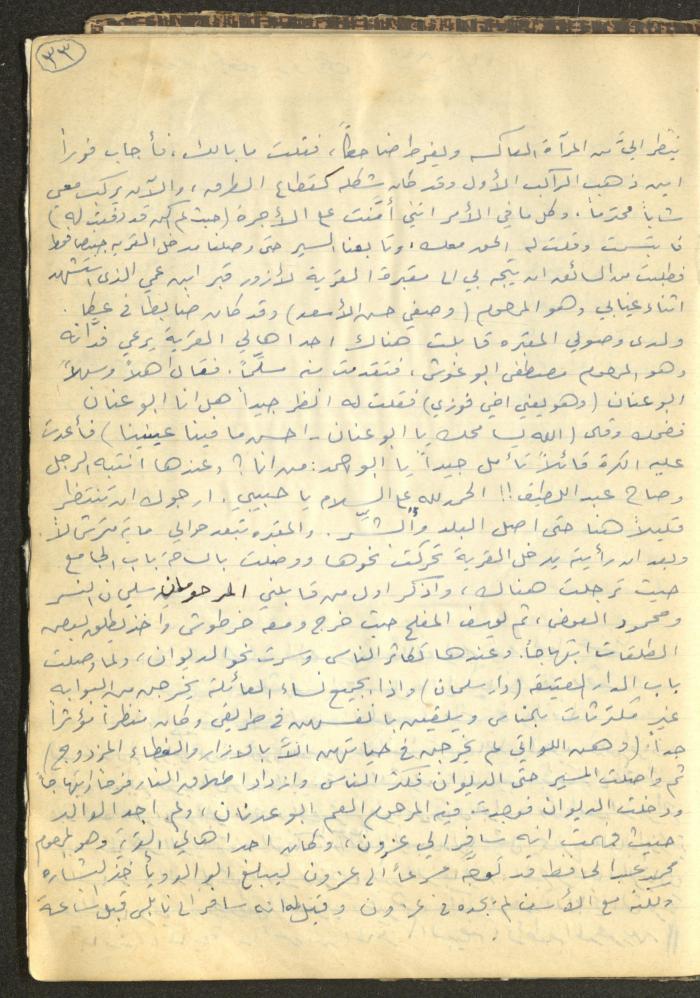 ٣٣
ينظر اليَّ من المرآة العاكسه ويفرط ضاحكاً، فقلت ما بالك، فأجاب فوراً
اين ذهب الراكب الأول وقد كان شكله كقطاع الطرق، والآن يركب معي
شاباً محترماً، وكل ما في الأمر انني أمَّنت على الأجرة (حيث لم اكن قد دفعت له)
فابتسمت وقلت له الحق معك، وتابعنا السير حتى وصلنا مدخل القريه
فطلبت من السائق ان يتجه بي الى مقبرة القرية لأزور قبر ابن عمي الذي استشهد
اثناء غيابي وهو المرحوم (وصفي حسن الأسعد) وقد كان ضابطاً في عكا.
ولدى وصولي المقبره قابلت هناك احد اهالي القرية يرعى
وهو المرحوم مصطفى ابو غوش، فتقدمت منه مسلّماً. فقال اهلاً وسهلاً
ابو عنان (وهو يعني اخي فوزي) فقلت له انظر جيداً هل انا ابو عنان
فضحك وقال (الله يسامحك يا ابو عنان احسن ما فينا عينينا) فأعدت
عليه الكرة قائلاً تأمل جيداً يا ابو احمد: من انا؟ وعندها انتبه الرجل
وصاح عبد اللطيف!! الحمد لله على السلام يا حبيبي. ارجوك ان تنتظر
قليلاً هنا حتى اصل البلد وأبشّر. والمقبره تبعد حوالي ماية متر
وبعد ان رأيته يدخل القرية تحركت نحوها ووصلت بالساحة باب الجامع
حيث ترجلت هناك، واذكر اول من قابلني المرحومان سليمان النسر
ومحمود العوض، ثم يوسف المفلح حيث خرج ومعه خرطوش واخذ يطلق بعض
الطلقات ابتهاجاً. وعندها تكاثر الناس وسرت نحو الديوان، ولما وصلت
باب الدار العتيقة (دار سلمان) واذا بجميع نساء العائلة يخرجن من البوابه
غير مكترثات بالناس ويلقين بانفسهن في طريقي وكان منظراً مؤثراً
جداً (وهن اللواتي لم يخرجن في حياتهن الاّ بالازار والغطاء المزدوج)
ثم واصلت المسير حتى الديوان فكثر الناس وازداد اطلاق النار فرحاً وابتهاجاً
ودخلت الديوان فوجدت فيه المرحوم العم ابو عدنان، ولم اجد الوالد
حيث فهمت انه سافر الى عزون، وكان احد اهالي القرية وهو المرحوم
محمد عبد الحافظ قد توجه مسرعاً الى عزون ليبلغ الوالد ويأخذ البشاره
ولكنه مع الأسف لم يجده في عزون وقيل له انه سافر الى نابلس قبل ساعة